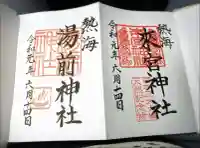 熱海
來宮神社
令和元年六月十四日
熱海
湯前神社
令和元年六月十四日